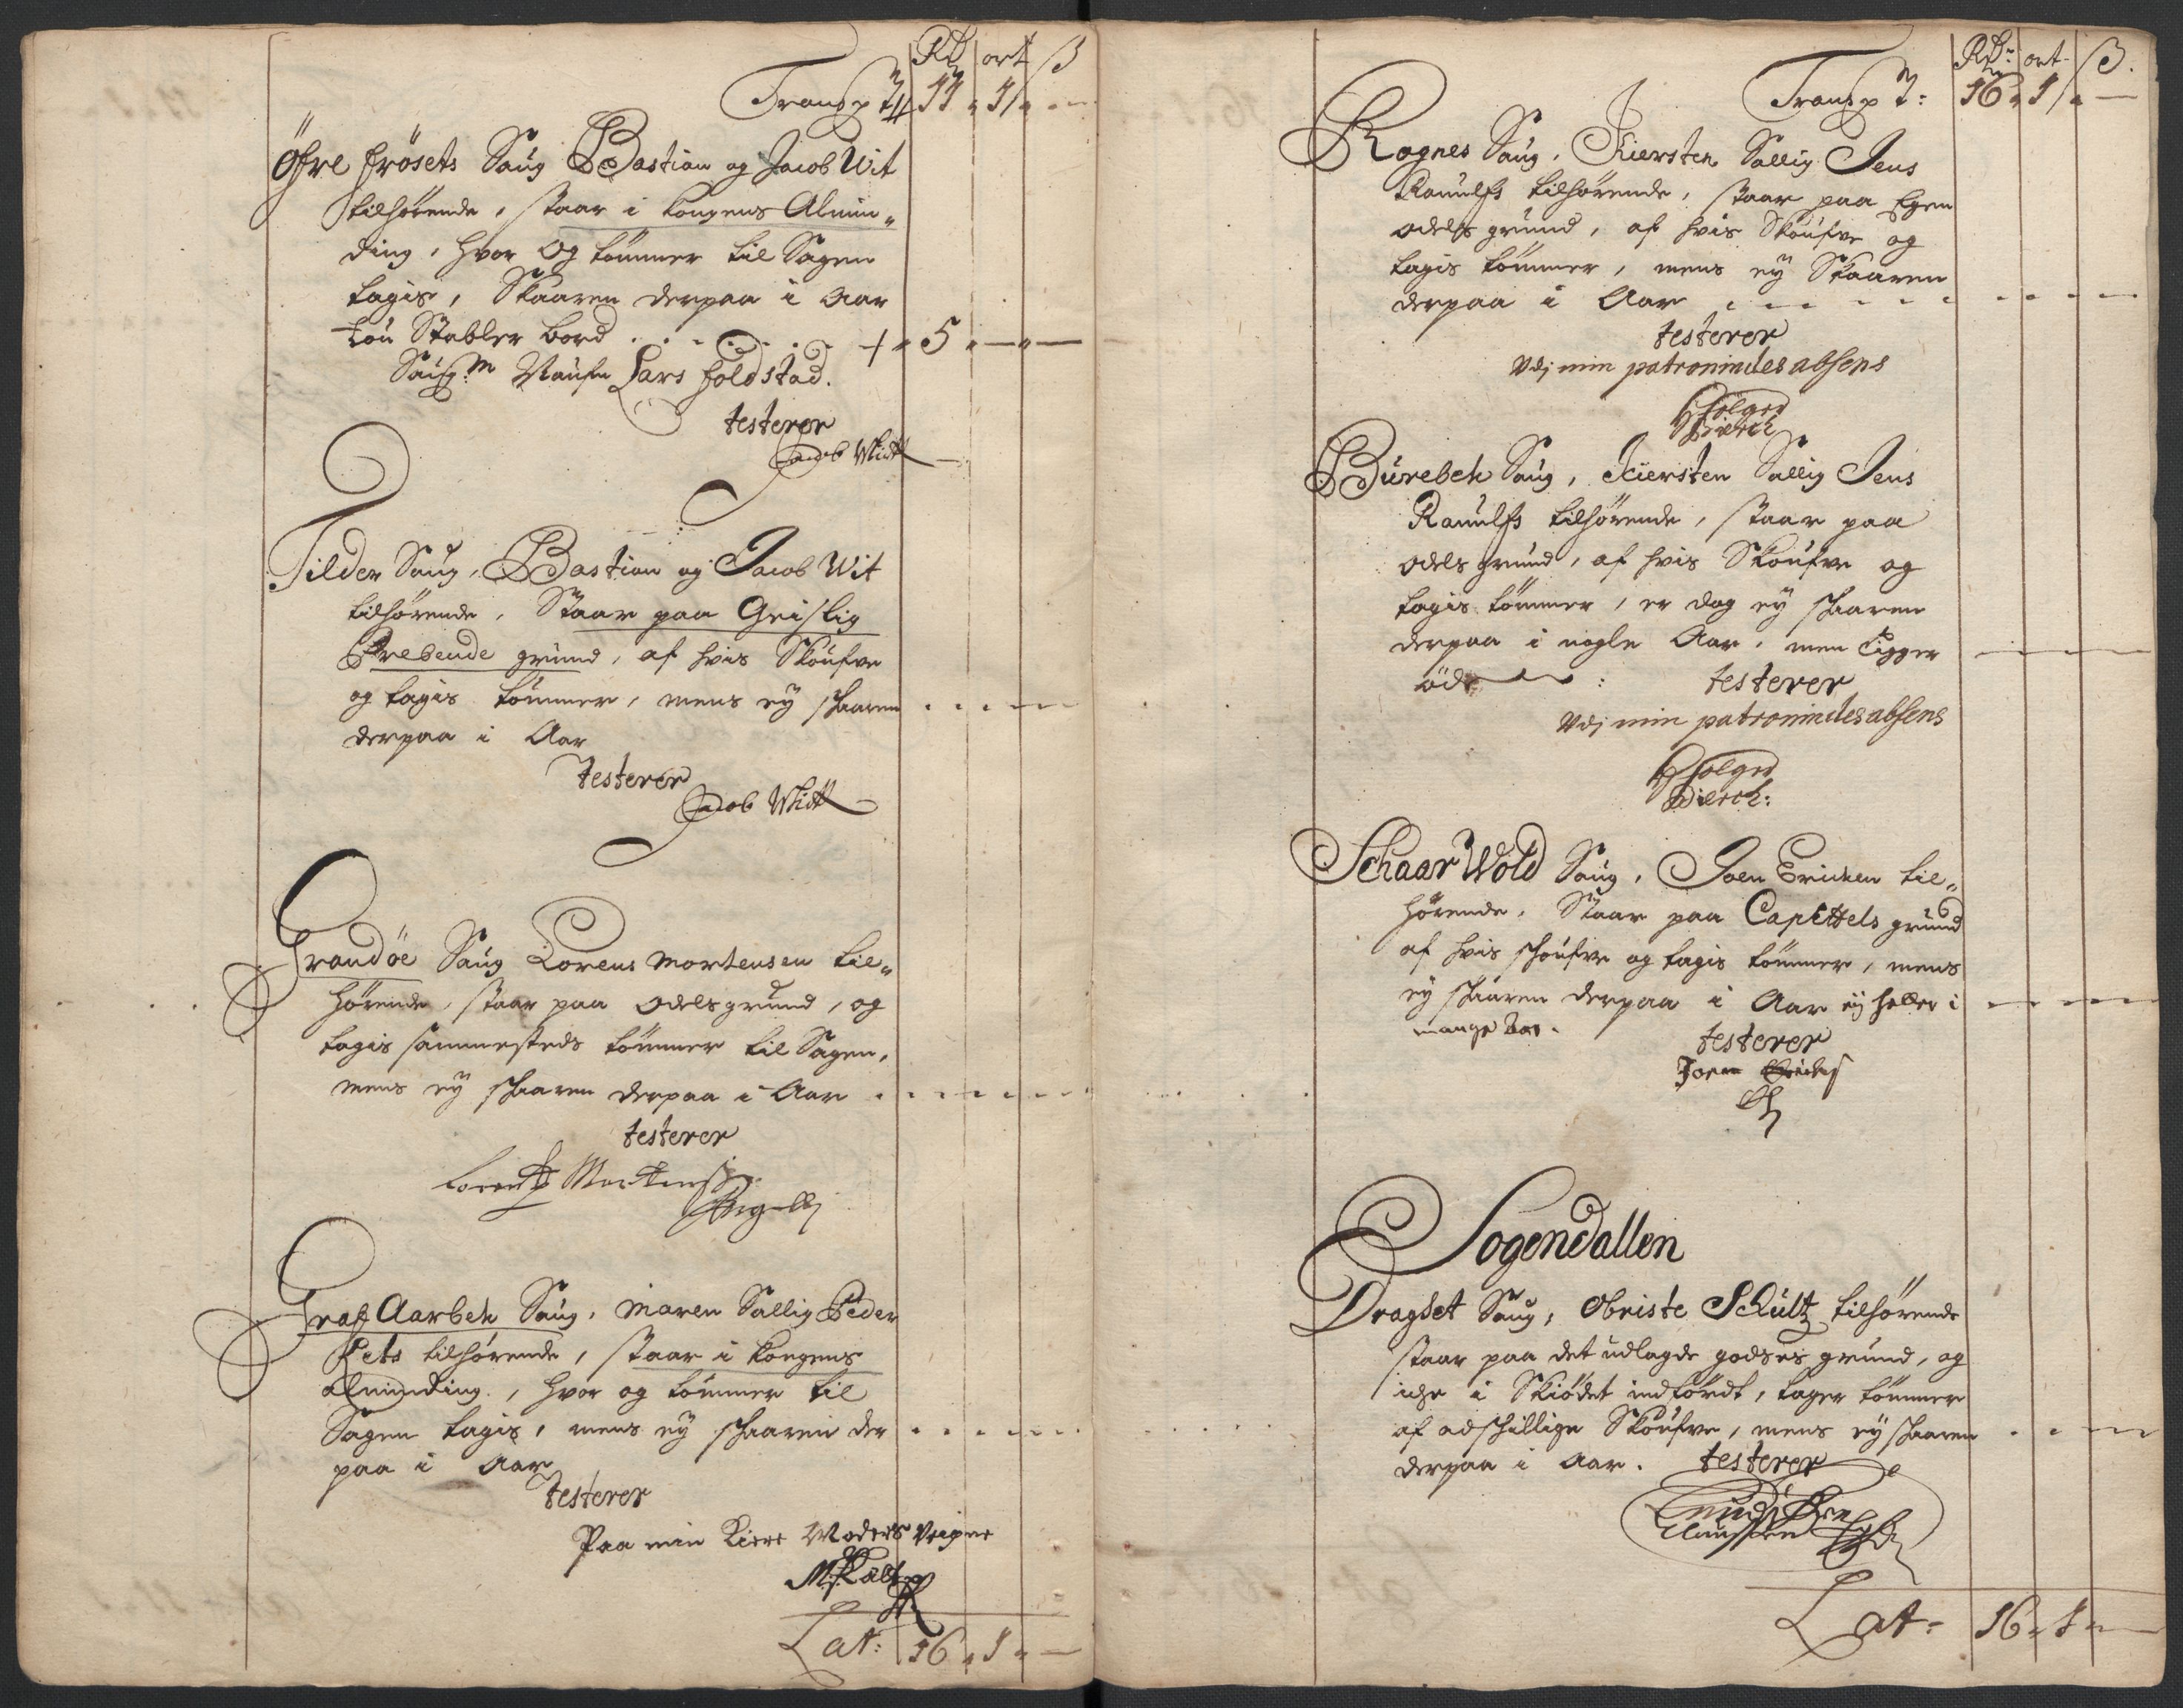 Rd ort ß
Transp 11 " 1 "
Öfre frösets Saug Bastian og Jacob Wit
tilhörende, staar i Kongens Almin„
ding, hvor og tömmer til Sagen
tagis, Skaaren derpaa i Aar
tou Stabler bord . . . . + " 5 " — " —
Lars foldstad.
testerer
Jacob Whitt
Tilder Saug, Bastian og Jacob Wit
tilhörende, Staar paa Geistlig
Prebende grund, af hvis Skoufve
og tagis tömmer, mens ey skaaren
derpaa i Aar
testerer
Jacob Whitt
Trondöe Saug Lorens Mortensen til„
hörende, staar paa odelsgrund, og
tagis sammesteds tömmer til Sagen,
mens ey skaaren derpaa i Aar
testerer
Lorentz Mortensen
Graf Aarbek Saug, Maren Sallig Peder
tilhörende, staar i Kongens
alminding, hvor og tömmer til
Sagen tagis, mens ey skaaren der
paa i Aar
testerer
Paa min Kiere Moders Veigne
Lat: 16 " 1 " —
Rd: ort ß.
Transp : 16 " 1 " —
Rognes Saug, Kiersten Sallig Jens
Ranulfs tilhörende, staar paa Egen
odels grund, af hvis Skoufve og
tagis tömmer, mens ey Skaaren
derpaa i Aar
testerer
Vdj min patronindes absens
Holger
Diirch
Burebek Saug, Kiersten Sallig Jens
Ranulfs tilhörende, staar paa
odels grund, af hvis Skoufve og
tagis tömmer, er dog ey skaaren
derpaa i nogle Aar, men ligger
öde : testerer
Vdj min patronindes absens
Holger
Diirch:
Schaar Wold Saug, Joen Ericksen til„
hörende, Staar paa Capittels grund
af hvis skoufve og tagis tömmer, mens
ey skaaren derpaa i Aar ey heller i
mange Aar. testerer
Joen Ericks
Sogendallen
Dragset Saug, Obriste Schultz tilhörende
staar paa det udlagde godses grund, og
icke i Skiödet indfördt, tager tömmer
af adskillige Skoufve, mens ey skaaren
derpaa i Aar. testerer
Lat: 16 " 1 " —